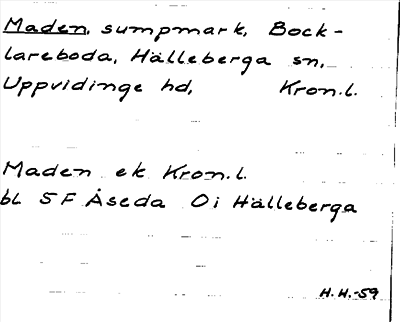 Maden, sumpmark, Bock-
lareboda, Hälleberga sn,
Uppvidinge hd, Kron.l.
Maden ek Kron.l.
bl 5F Åseda Oi Hälleberga
H.H.-59